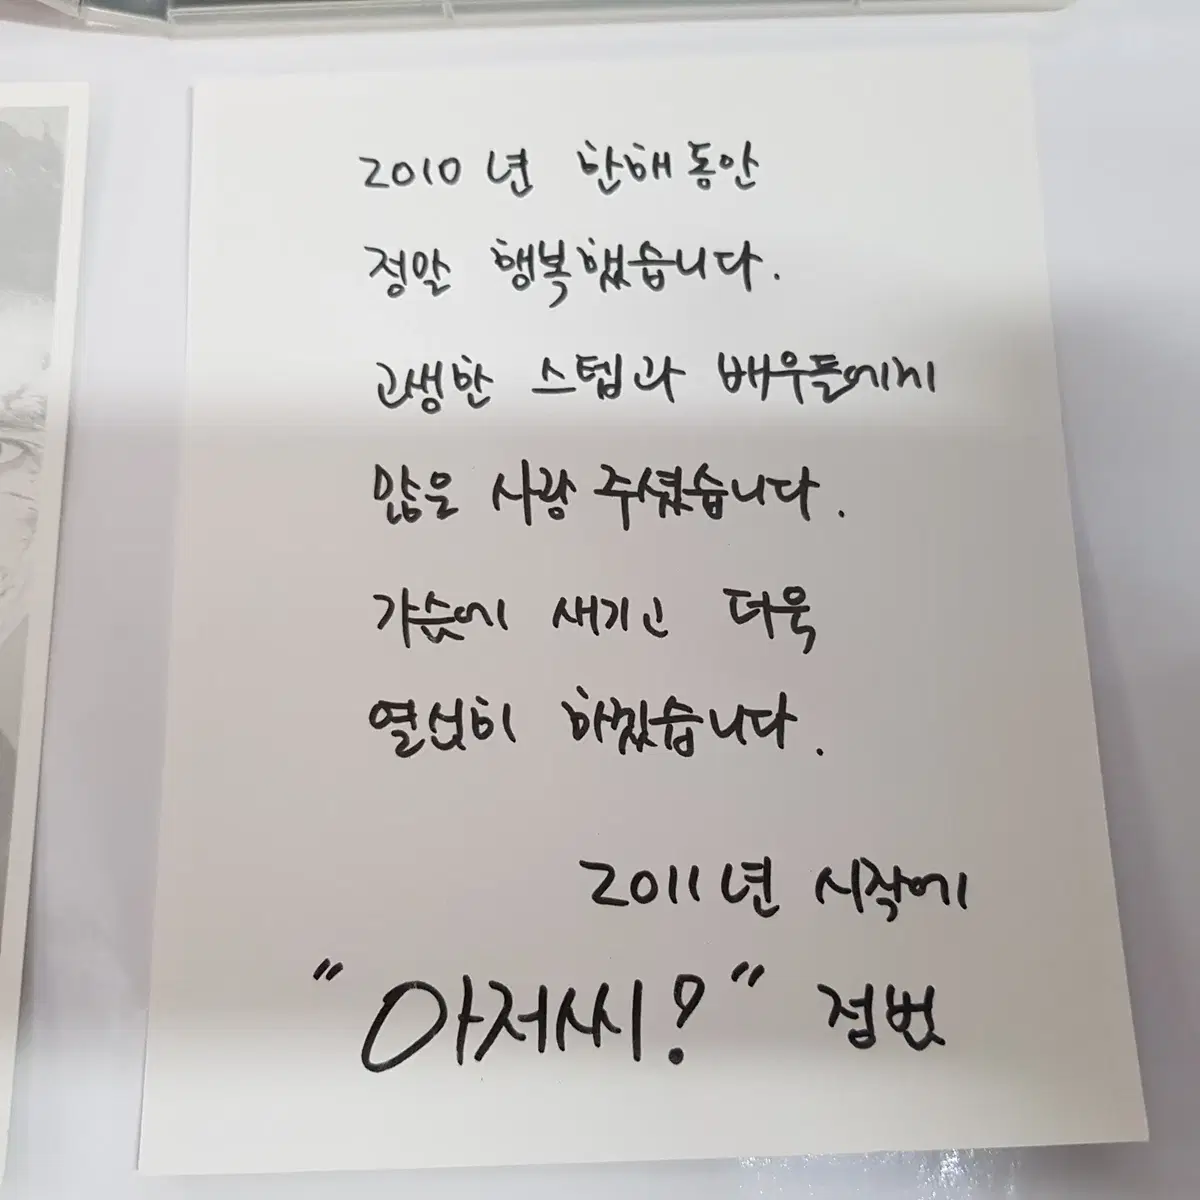 2010년 한해동안
정말 행복했습니다.
고생한 스텝과 배우들에게
많은 사랑 주셨습니다.
가슴에 새기고 더욱
열심히 하겠습니다.
2011년 시작에
"아저씨?" 정범